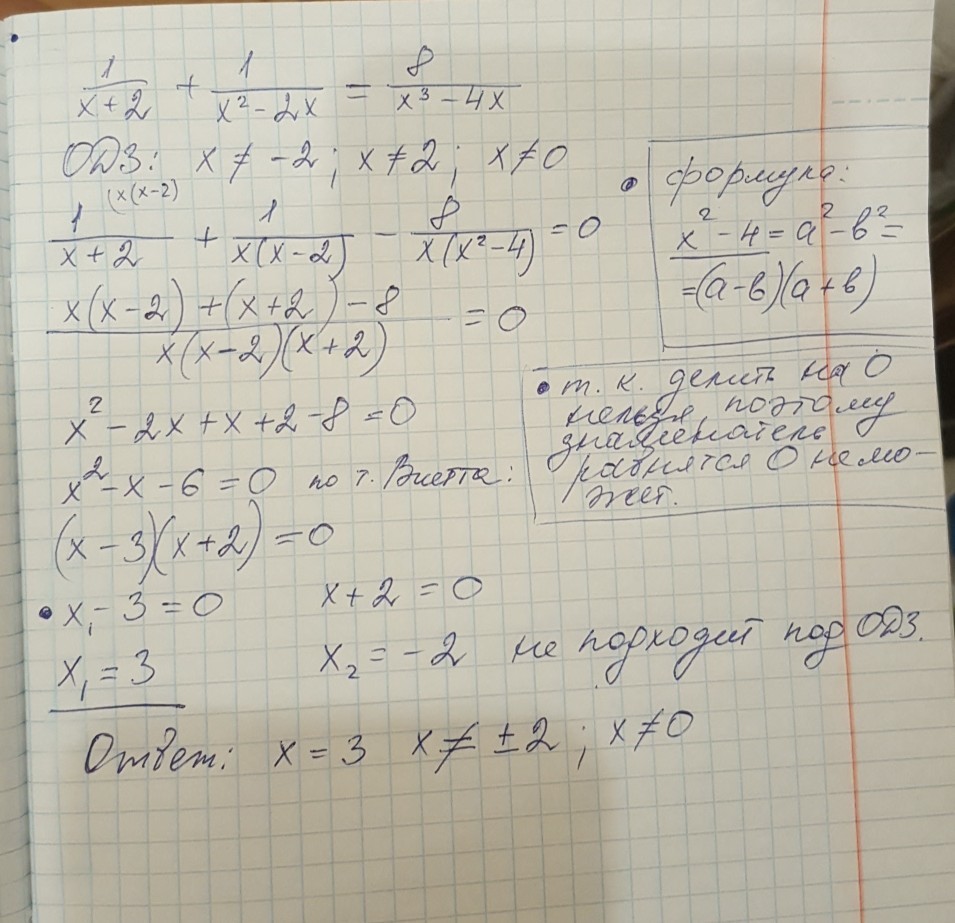 1/(x+2) + 1/(x²-2x) = 8/(x³-4x)
ОДЗ: x ≠ -2; x ≠ 2; x ≠ 0
(x(x-2)
1/(x+2) + 1/(x(x-2)) - 8/(x(x²-4)) = 0
(x(x-2)+(x+2)-8)/(x(x-2)(x+2)) = 0
x²-2x+x+2-8=0
x²-x-6=0 по т. Виетта:
(x-3)(x+2)=0
• x₁-3=0 x+2=0
x₁=3 x₂=-2 не подходит под ОДЗ.
Ответ: x=3 x≠±2; x≠0
• формула:
x²-4=a²-b²=
=(a-b)(a+b)
• т.к. делить на 0
нельзя, поэтому
знаменатель
равнятся 0 не мо-
жет.